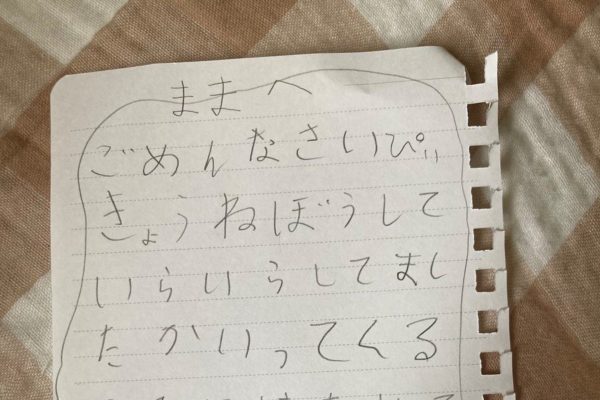 ままへ
ごめんなさいぴ。
きょうねぼうして
いらいらしてまし
たかいってくる